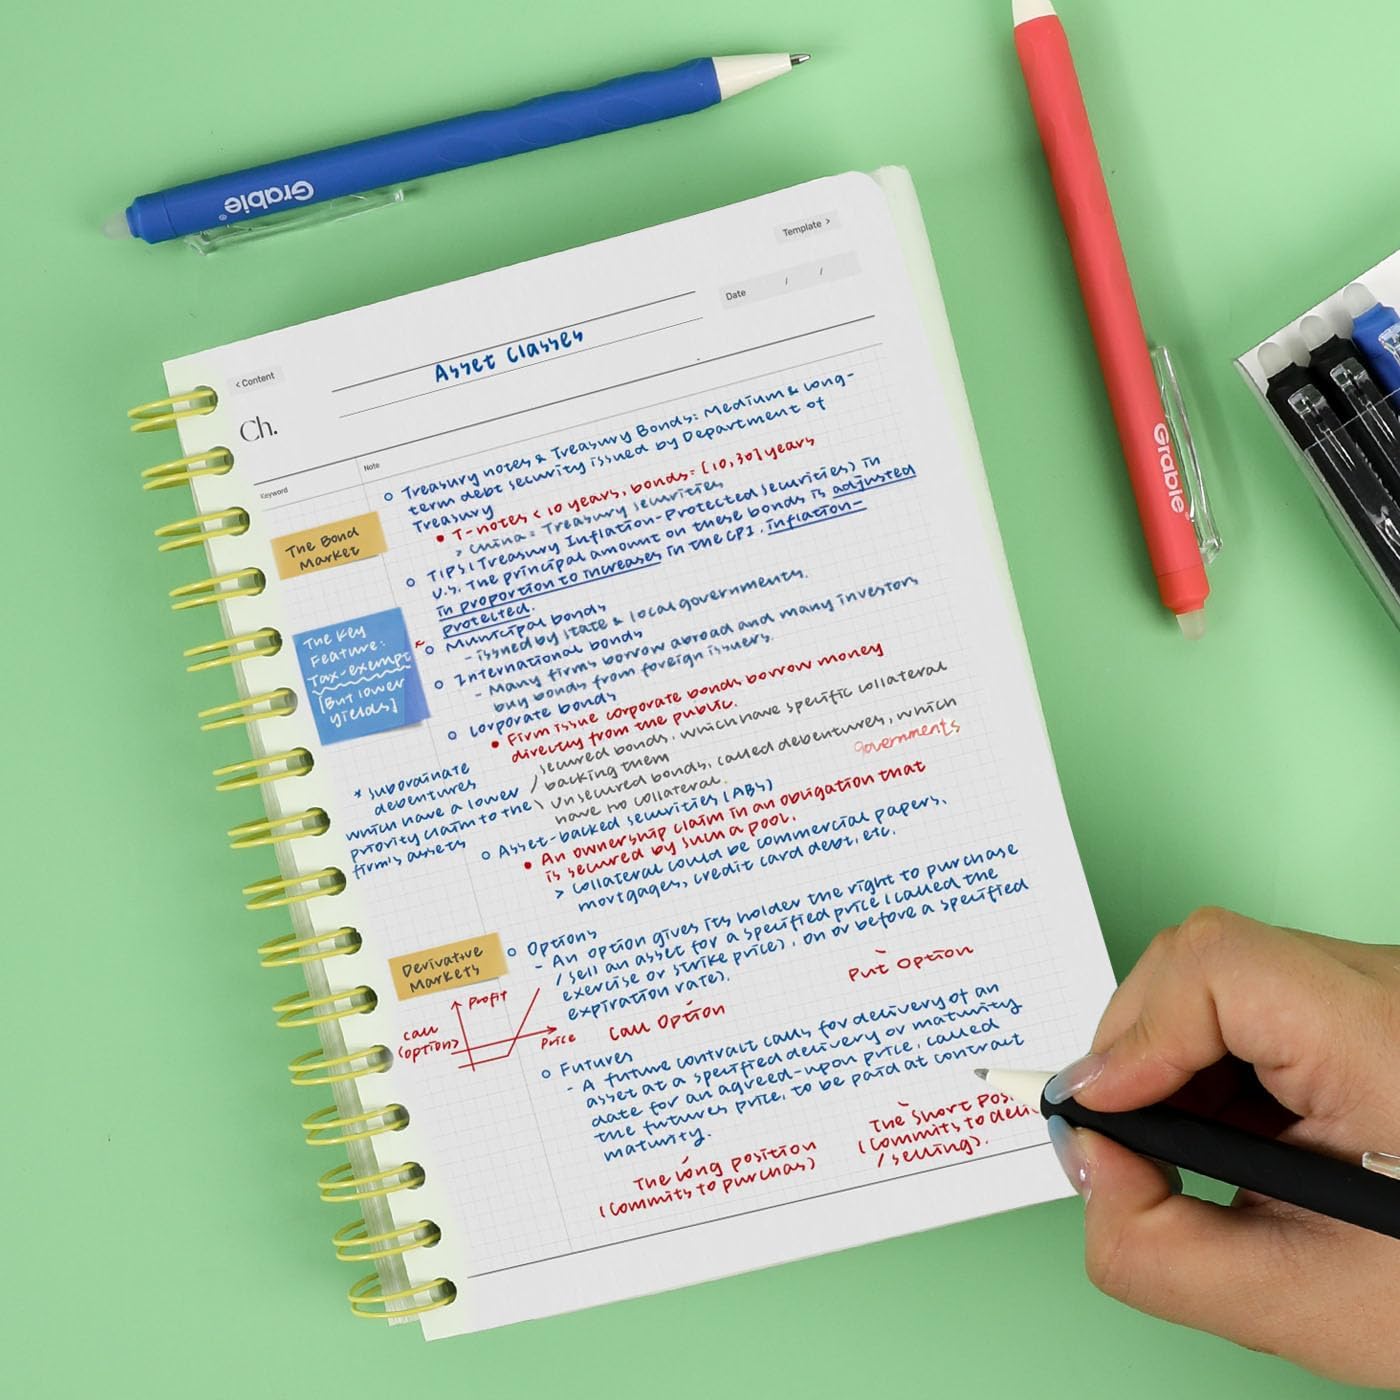 Grabie
Grabie
Template >
Date / /
Asset Classes
< Content
Ch.
Keyword
Note
The Bond
Market
Treasury notes & Treasury Bonds: Medium & long-
term debt security issued by Department of
Treasury
T-notes < 10 years, bonds = [10,30] years
> China = Treasury securities
TIPS (Treasury Inflation-Protected Securities) in
U.S. The principal amount on these bonds is adjusted
in proportion to increases in the CPI. inflation-
protected.
The Key
Feature:
Tax-exempt
[But lower
yields]
Municipal bonds
- issued by state & local governments.
International bonds
- Many firms borrow abroad and many investors
buy bonds from foreign issuers.
Corporate bonds
Firm issue corporate bonds borrow money
directly from the public.
secured bonds, which have specific collateral
/ backing them
\ Unsecured bonds, called debentures, which
have no collateral.
governments
* subordinate
debentures
which have a lower
priority claim to the
firm's assets
Asset-backed securities (ABS)
An ownership claim in an obligation that
is secured by such a pool.
> Collateral could be commercial papers,
mortgages, credit card debt, etc.
Derivative
Markets
Options
- An option gives its holder the right to purchase
/ sell an asset for a specified price (called the
exercise or strike price), on or before a specified
expiration rate).
Call Option
Put Option
Profit
Call
(option)
Price
Futures
- A future contract calls for delivery of an
asset at a specified delivery or maturity
date for an agreed-upon price, called
the futures price, to be paid at contract
maturity.
The long position
(Commits to purchas)
The short Pos
(Commits to deli
/ selling).